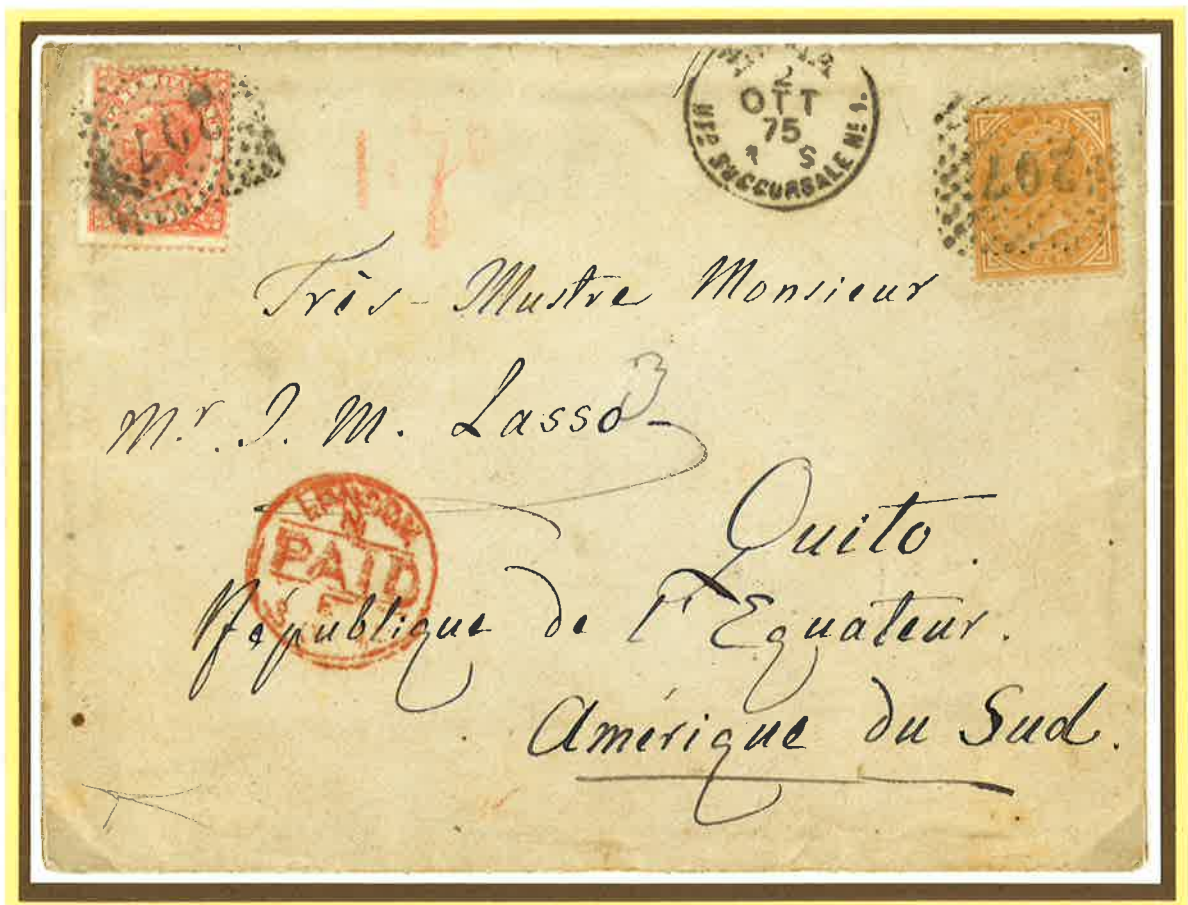 2
OTT
75
S
SUCCURSALE Nº 1.
207
207
Très-Illustre Monsieur
Mr. J. M. Lasso
LONDON
N
PAID
Quito.
République de l'Equateur.
Amérique du Sud.